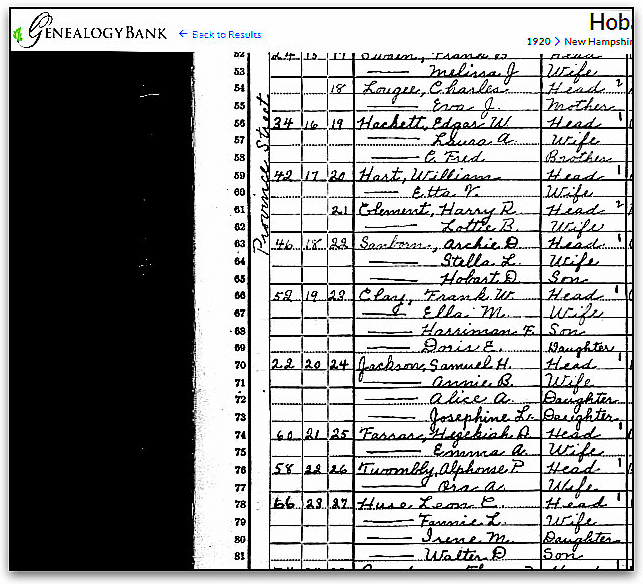 GENEALOGYBANK ← Back to Results Hob
1920 > New Hampshir
52 24 15 17 Frank Head
53 —— Melissa J Wife
54 18 Lougee, Charles Head 2
55 —— Eva J. Mother
56 34 16 19 Hackett, Edgar W Head 1
57 —— Laura A. Wife
58 —— C. Fred Brother
59 42 17 20 Hart, William Head 1
60 —— Etta V. Wife
61 21 Clement, Harry R Head 2
62 —— Lottie B. Wife
63 46 18 22 Sanborn, Archie D Head 1
64 —— Stella L. Wife
65 —— Hobart D Son
66 52 19 23 Clay, Frank W. Head 1
67 —— Ella M. Wife
68 —— Harriman F. Son
69 —— Doris E. Daughter
70 22 20 24 Jackson, Samuel H. Head 1
71 —— Annie B. Wife
72 —— Alice A. Daughter
73 —— Josephine L. Daughter
74 60 21 25 Farrar, Hezekiah D Head 1
75 —— Emma A. Wife
76 58 22 26 Twombly, Alphonse P Head 1
77 —— Ora A. Wife
78 66 23 27 Huse Leon C. Head 1
79 —— Fannie L. Wife
80 —— Irene M. Daughter
81 —— Walter D Son
Province Street